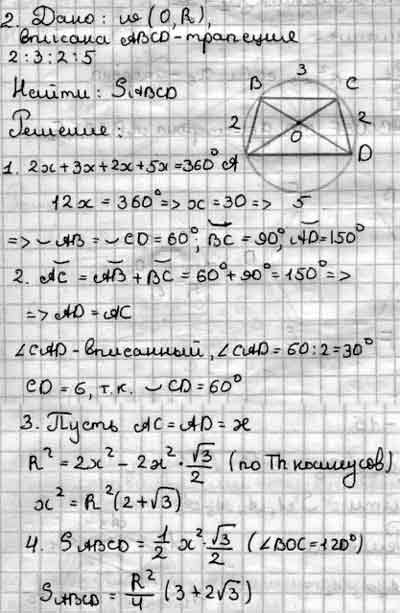 2. Дано: w (O, R),
вписана ABCD-трапеция
2:3:2:5
Найти: SABCD
Решение:
B
3
C
2
2
O
A
D
5
1. 2x+3x+2x+5x=360°
12x = 360° => x=30 =>
=> ◡AB = ◡CD = 60°; BC = 90°, AD=150°
2. AC = AB + BC = 60°+90°=150° =>
=> AD = AC
∠CAD - вписанный, ∠CAD = 60:2=30°
CD = 6, т.к. ◡CD = 60°
3. Пусть AC = AD = x
R² = 2x² - 2x² · √3/2 (по Th косинусов)
x² = R² (2+√3)
4. SABCD = 1/2 x² · √3/2 (∠BOC=120°)
SABCD = R²/4 (3+2√3)